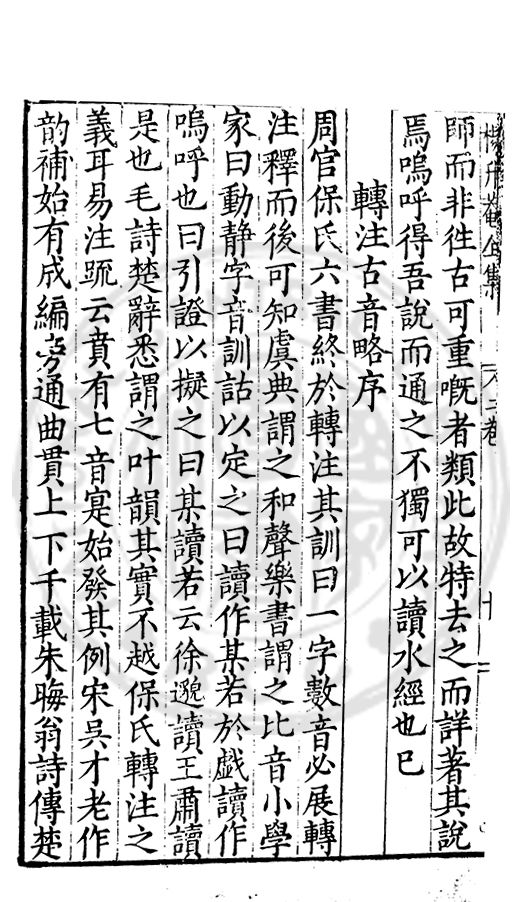 楊升菴全集 卷二 十二
師而非徃古可重嘅者類此故特去之而詳著其說
焉嗚呼得吾說而通之不獨可以讀水經也已
轉注古音略序
周官保氏六書終於轉注其訓曰一字數音必展轉
注釋而後可知虞典謂之和聲樂書謂之比音小學
家曰動靜字音訓詁以定之曰讀作某若於戲讀作
嗚呼也曰引證以擬之曰某讀若云徐邈讀王肅讀
是也毛詩楚辭悉謂之叶韻其實不越保氏轉注之
義耳易注䟽云賁有七音寔始發其例宋吳才老作
韵補始有成編旁通曲貫上下千載朱晦翁詩傳楚